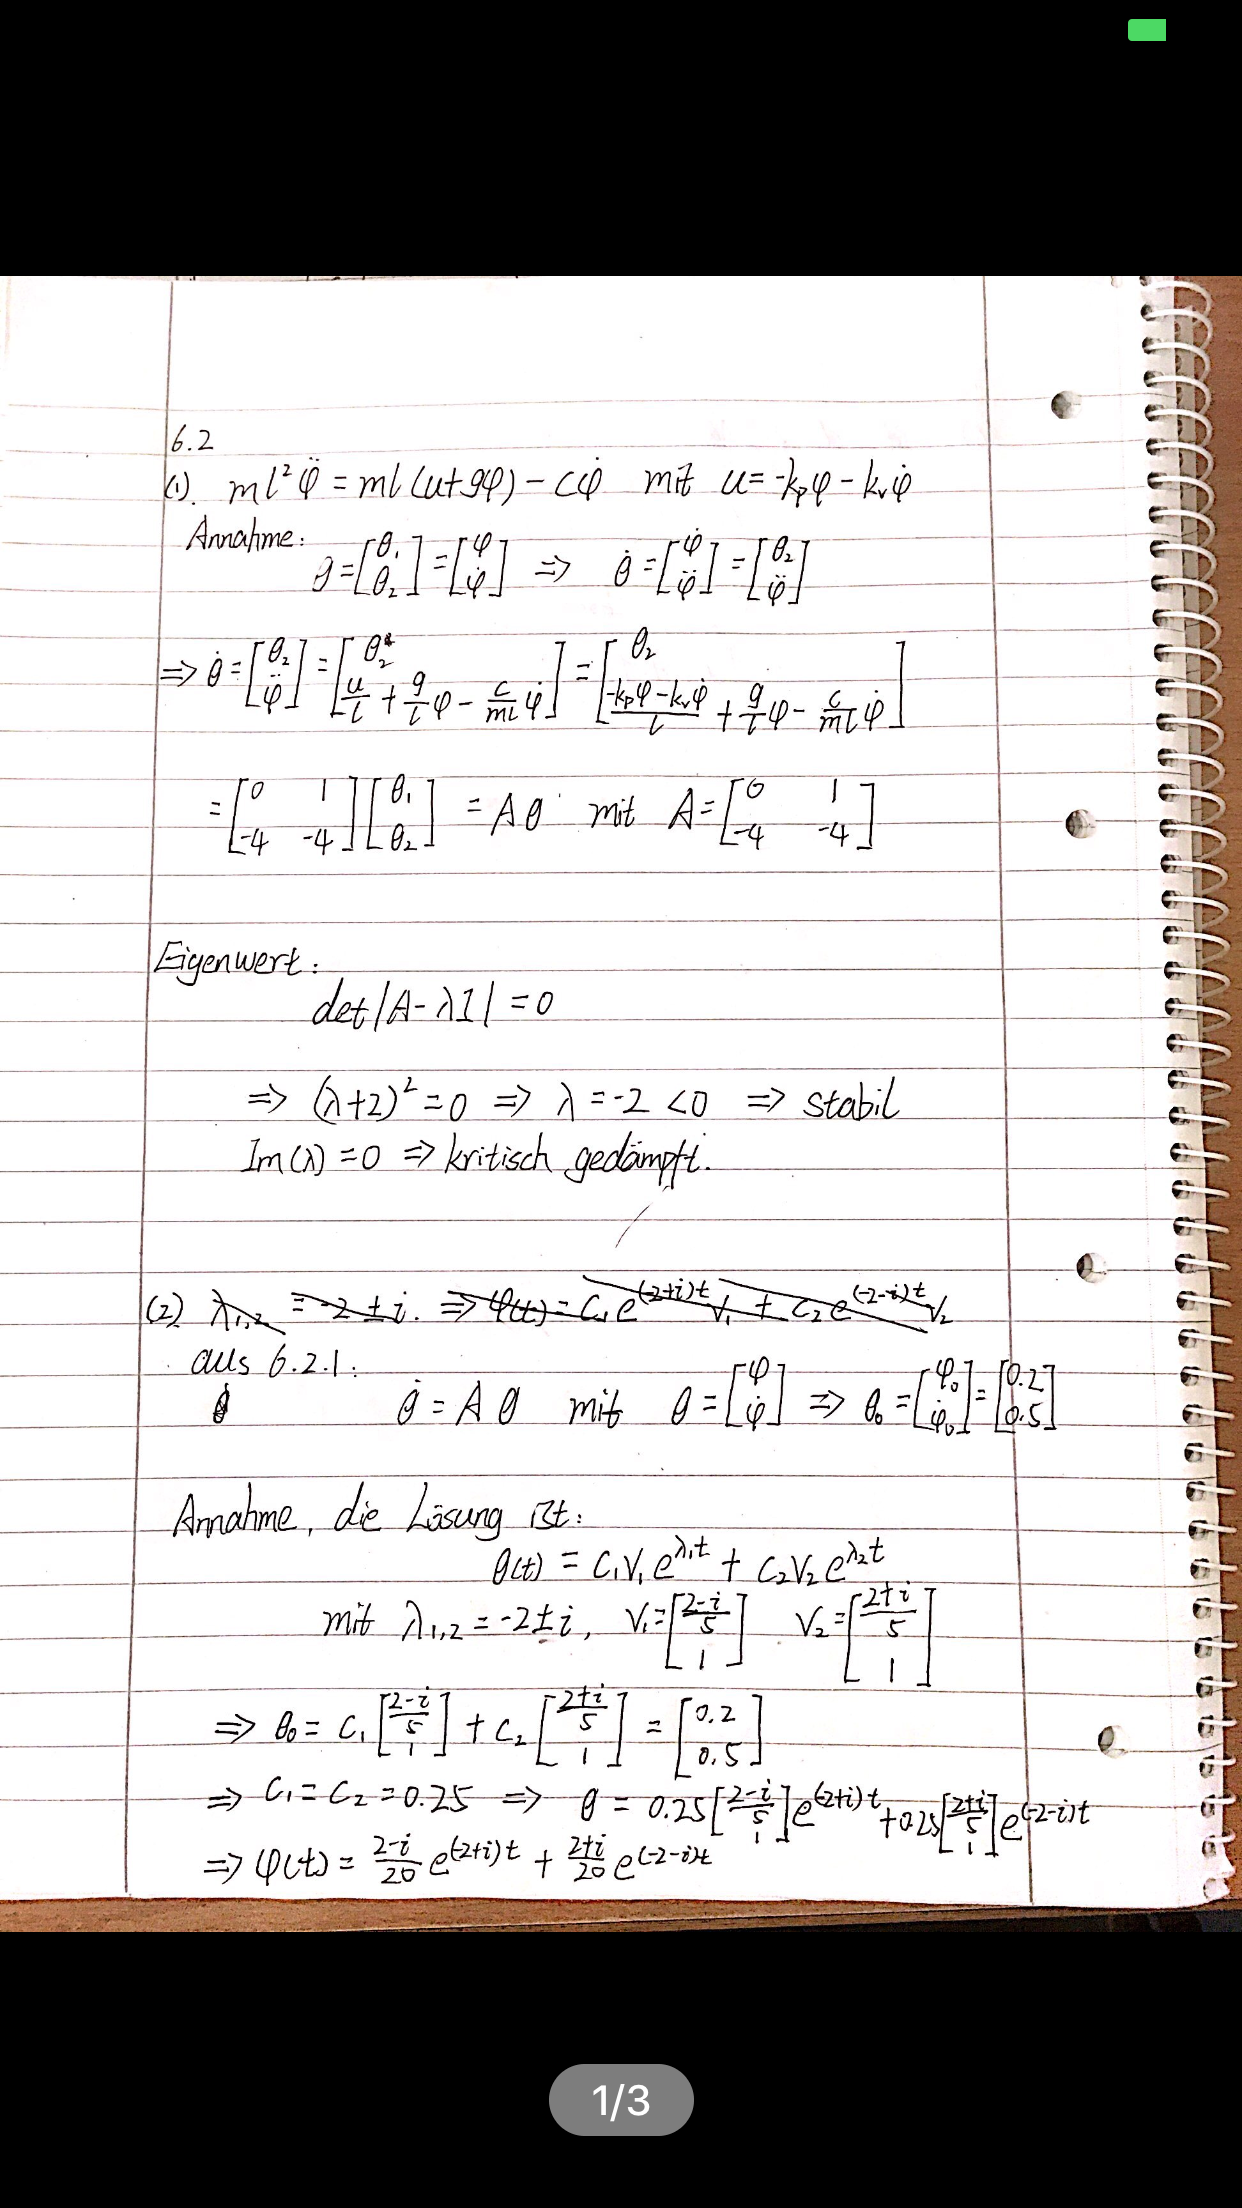 6.2
(1). ml²φ̈ = ml(u+gφ) - cφ̇ mit u = -kₚφ - kᵥφ̇
Annahme:
θ = [θ₁; θ₂] = [φ; φ̇] => θ̇ = [φ̇; φ̈] = [θ₂; φ̈]
=> θ̇ = [θ₂; φ̈] = [θ₂; u/l + g/l φ - c/ml φ̇] = [θ₂; (-kₚφ - kᵥφ̇)/l + g/l φ - c/ml φ̇]
= [0 1; -4 -4] [θ₁; θ₂] = Aθ mit A = [0 1; -4 -4]
Eigenwert:
det|A - λI| = 0
=> (λ+2)² = 0 => λ = -2 < 0 => stabil
Im(λ) = 0 => kritisch gedämpft.
(2) λ₁,₂ = -2 ± i. => φ(t) = C₁e^(-2+i)t V₁ + C₂e^(-2-i)t V₂
aus 6.2.1:
θ̇ = Aθ mit θ = [φ; φ̇] => θ₀ = [φ₀; φ̇₀] = [0.2; 0.5]
Annahme, die Lösung ist:
θ(t) = C₁V₁e^λ₁t + C₂V₂e^λ₂t
mit λ₁,₂ = -2 ± i, V₁ = [(2-i)/5; 1] V₂ = [(2+i)/5; 1]
=> θ₀ = C₁ [(2-i)/5; 1] + C₂ [(2+i)/5; 1] = [0.2; 0.5]
=> C₁ = C₂ = 0.25 => θ = 0.25 [(2-i)/5; 1] e^(-2+i)t + 0.25 [(2+i)/5; 1] e^(-2-i)t
=> φ(t) = (2-i)/20 e^(-2+i)t + (2+i)/20 e^(-2-i)t
1/3